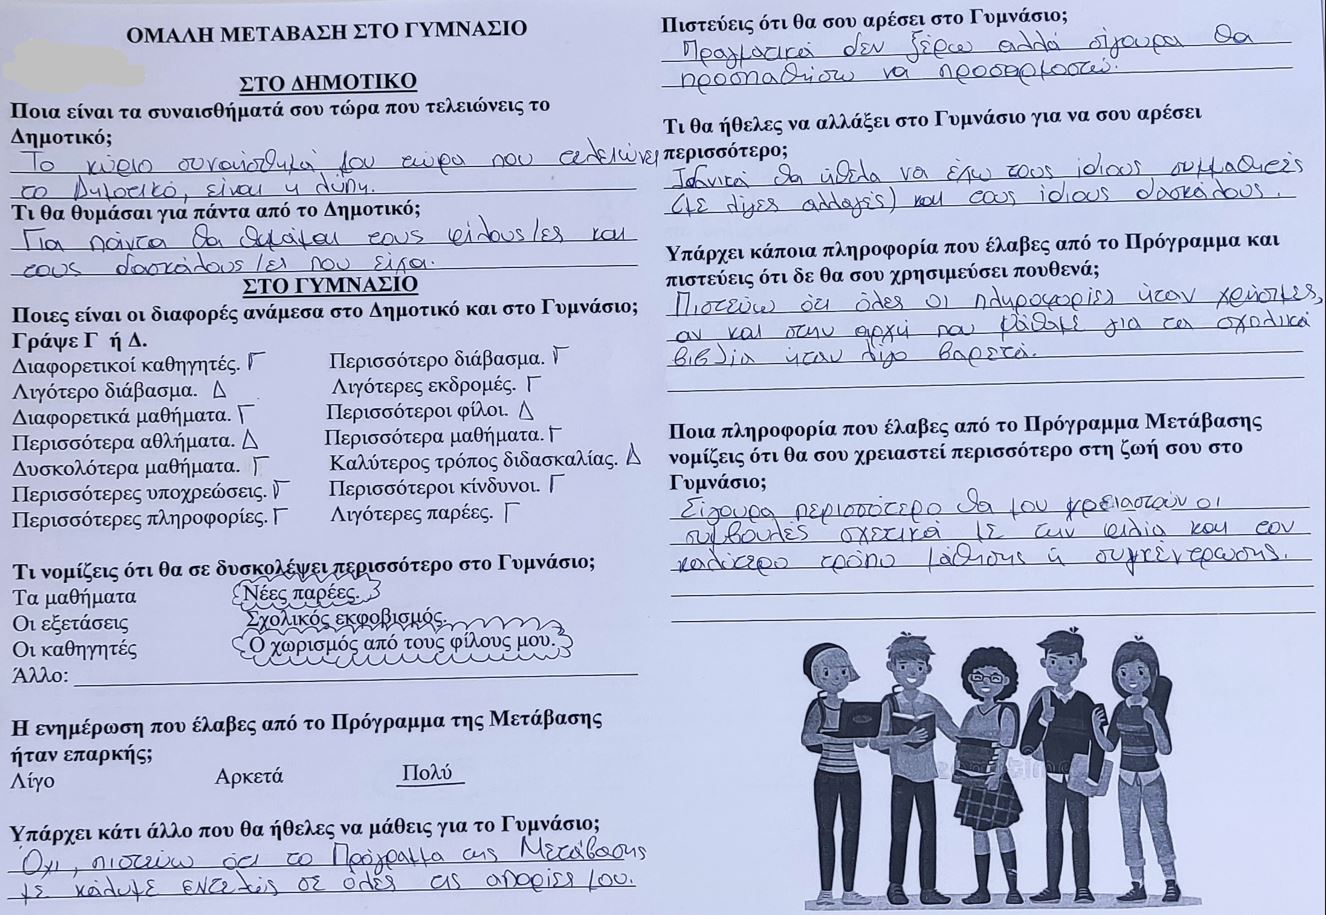 ΟΜΑΛΗ ΜΕΤΑΒΑΣΗ ΣΤΟ ΓΥΜΝΑΣΙΟ
ΣΤΟ ΔΗΜΟΤΙΚΟ
Ποια είναι τα συναισθήματά σου τώρα που τελειώνεις το
Δημοτικό;
Το κύριο συναίσθημά μου τώρα που τελειώνει
το Δημοτικό, είναι η λύπη.
Τι θα θυμάσαι για πάντα από το Δημοτικό;
Για πάντα θα θυμάμαι τους φίλους/ες και
τους δασκάλους/ες που είχα.
ΣΤΟ ΓΥΜΝΑΣΙΟ
Ποιες είναι οι διαφορές ανάμεσα στο Δημοτικό και στο Γυμνάσιο;
Γράψε Γ ή Δ.
Διαφορετικοί καθηγητές. Γ Περισσότερο διάβασμα. Γ
Λιγότερο διάβασμα. Δ Λιγότερες εκδρομές. Γ
Διαφορετικά μαθήματα. Γ Περισσότεροι φίλοι. Δ
Περισσότερα αθλήματα. Δ Περισσότερα μαθήματα. Γ
Δυσκολότερα μαθήματα. Γ Καλύτερος τρόπος διδασκαλίας. Δ
Περισσότερες υποχρεώσεις. Γ Περισσότεροι κίνδυνοι. Γ
Περισσότερες πληροφορίες. Γ Λιγότερες παρέες. Γ
Τι νομίζεις ότι θα σε δυσκολέψει περισσότερο στο Γυμνάσιο;
Τα μαθήματα Νέες παρέες.
Οι εξετάσεις Σχολικός εκφοβισμός.
Οι καθηγητές Ο χωρισμός από τους φίλους μου.
Άλλο:
Η ενημέρωση που έλαβες από το Πρόγραμμα της Μετάβασης
ήταν επαρκής;
Λίγο Αρκετά Πολύ
Υπάρχει κάτι άλλο που θα ήθελες να μάθεις για το Γυμνάσιο;
Όχι, πιστεύω ότι το Πρόγραμμα της Μετάβασης
με κάλυψε εντελώς σε όλες τις απορίες μου.
Πιστεύεις ότι θα σου αρέσει στο Γυμνάσιο;
Πραγματικά δεν ξέρω αλλά σίγουρα θα
προσπαθήσω να προσαρμοστώ.
Τι θα ήθελες να αλλάξει στο Γυμνάσιο για να σου αρέσει
περισσότερο;
Ιδανικά θα ήθελα να έχω τους ίδιους συμμαθητές
(με λίγες αλλαγές) και τους ίδιους δασκάλους.
Υπάρχει κάποια πληροφορία που έλαβες από το Πρόγραμμα και
πιστεύεις ότι δε θα σου χρησιμεύσει πουθενά;
Πιστεύω ότι όλες οι πληροφορίες ήταν χρήσιμες,
αν και στην αρχή που μάθαμε για τα σχολικά
βιβλία ήταν λίγο βαρετά.
Ποια πληροφορία που έλαβες από το Πρόγραμμα Μετάβασης
νομίζεις ότι θα σου χρειαστεί περισσότερο στη ζωή σου στο
Γυμνάσιο;
Σίγουρα περισσότερο θα μου χρειαστούν οι
συμβουλές σχετικά με την φιλία και τον
καλύτερο τρόπο μάθησης ή συγκέντρωσης.